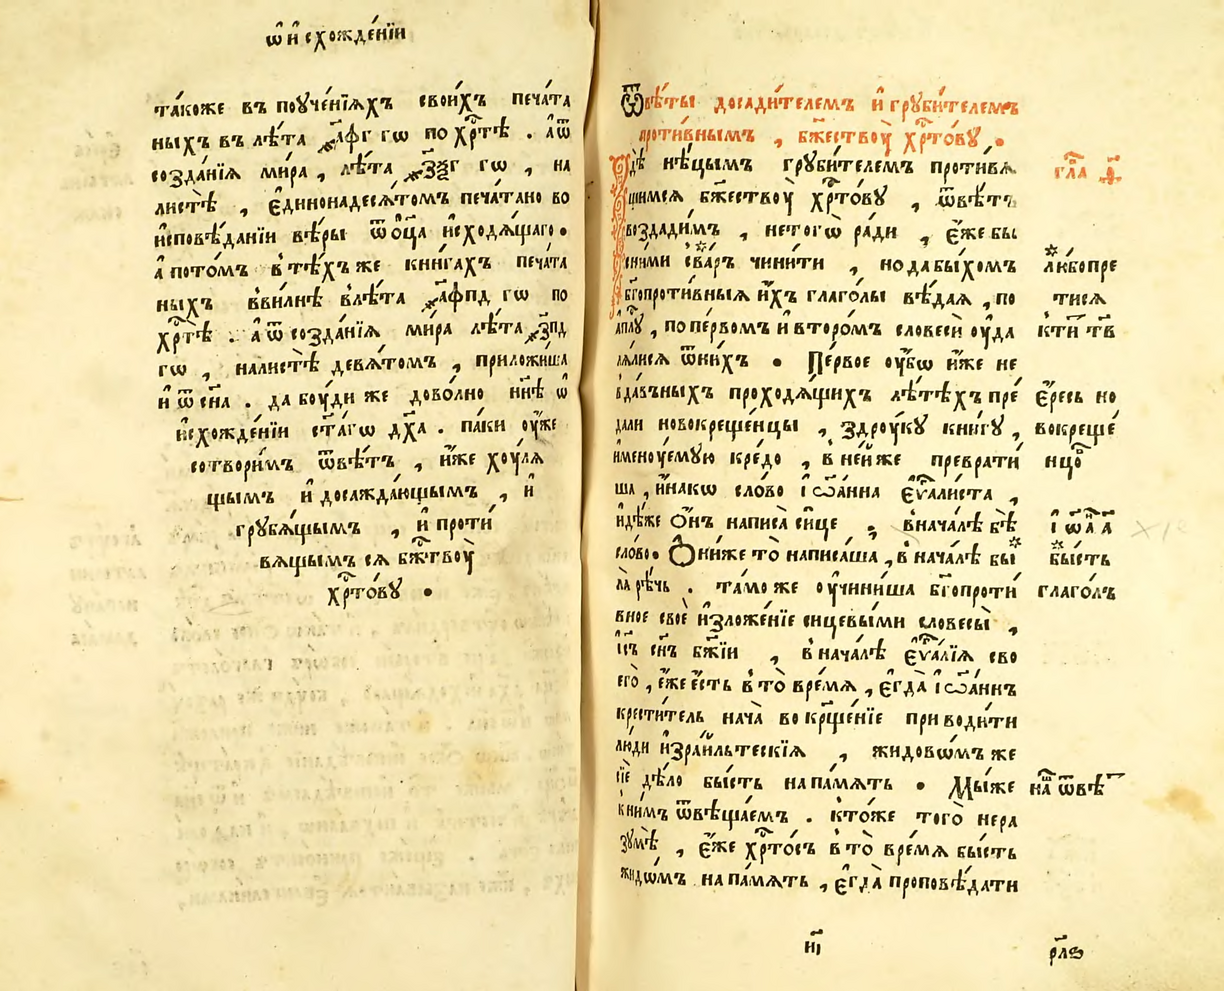 ѡ҆ и҆схожде́нїи
та́коже въ поꙋче́нїѧхъ свои́хъ печа́та
ныхъ въ лѣ́та ҂а҃фг гѡ по хрⷭ҇тѣ̀ . а҆ ѿ
созда́нїѧ ми́ра , лѣ́та ҂з҃ѯг гѡ , на
листѣ̀ , є҆динонадесѧ́томъ печа́тано во
и҆сповѣ́данїи вѣ́ры ѿ ѻ҆ц҃а и҆сходѧ́щаго .
а҆ пото́мъ в тѣ́хъ же кни́гахъ печа́та
ныхъ в ви́лнѣ в лѣ́та ҂а҃фпд гѡ по
хрⷭ҇тѣ̀ . а҆ ѿ созда́нїѧ ми́ра лѣ́та ҂з҃пд
гѡ , на листѣ̀ девѧ́томъ , приложи́ша
и҆ ѿ сн҃а . да бꙋ́ди же дово́лно нн҃ѣ ѡ҆
и҆схожде́нїи ст҃а́гѡ дх҃а . па́ки оу҆́же
сотвори́мъ ѿвѣ́тъ , и҆́же хоулѧ
щымъ и҆ досажда́ющымъ , и҆
грꙋбѧ́щымъ , и҆ проти́
вѧщымъ сѧ бж҃твоу̀
хрⷭ҇то́вꙋ .
Ѿвѣ́ты досади́телемъ и҆ грꙋби́телемъ
проти́внымъ , бж҃ествоу̀ хрⷭ҇то́вꙋ .
гла д҃
И҆дѣ̀ нѣ́цымъ грꙋби́телемъ проти́вѧ
щимсѧ бж҃ествоу̀ хрⷭ҇то́вꙋ , ѿвѣ́тъ
воздади́мъ , не тогѡ̀ ра́ди , є҆́же бы
с ни́ми сва́ръ чини́ти , но да бы́хомъ
ли́бо пре
бг҃опроти́вныѧ и҆́хъ глаго́лы вѣ́даѧ , по
тисѧ
а҆пⷭ҇лꙋ , по пе́рвомъ и҆ второ́мъ словесѝ оу҆да
к ти́тⷭ҇в
лѧ́лисѧ ѿ ни́хъ . Пе́рвое оу҆́бѡ и҆́же не
в да́вныхъ проходѧ́щихъ лѣ́тѣхъ пре́
є҆́ресь но
дали новокреще́нцы , здрꙋ́кꙋ кни́гꙋ ,
вокреще́
и҆меноу́емꙋю кре́до , в не́й же преврати́
нцо́в
ша , и҆́накѡ сло́во і҆ѡа́нна є҆ѵⷢ҇али́ста ,
и҆дѣ́же ѻ҆́нъ написа̀ си́це , в нача́лѣ бѣ̀
і҆ѡⷩ҇а а҃
сло́во . Ѻ҆ни́ же то̀ написа́ша , в нача́лѣ бы
бы́сть
ла̀ рѣ́чь . та́мо же оу҆чини́ша бг҃опроти́
глаго́лъ
вное своѐ и҆зложе́нїе сицевы́ми словесы̀ ,
і҆с҃ъ сн҃ъ бж҃їи , в нача́лѣ є҆ѵⷢ҇а́лїѧ сво
его̀ , є҆́же є҆́сть в то̀ вре́мѧ , є҆гда̀ і҆ѡа́ннъ
крести́тель нача̀ во крⷭ҇ще́нїе приводи́ти
лю́ди и҆зраи́льтескїѧ , жидовѡ́мъ же
сїѐ дѣ́ло бы́сть на па́мѧть . Мы́ же
на́ш ѿвѣ́т
к ни́мъ ѿвѣща́емъ . кто́ же того̀ нера
зꙋмѣ́ , є҆́же хрⷭ҇то́съ в то̀ вре́мѧ бы́сть
жидѡ́мъ на па́мѧть , є҆гда̀ проповѣ́дати
н҃і
р҃лѕ